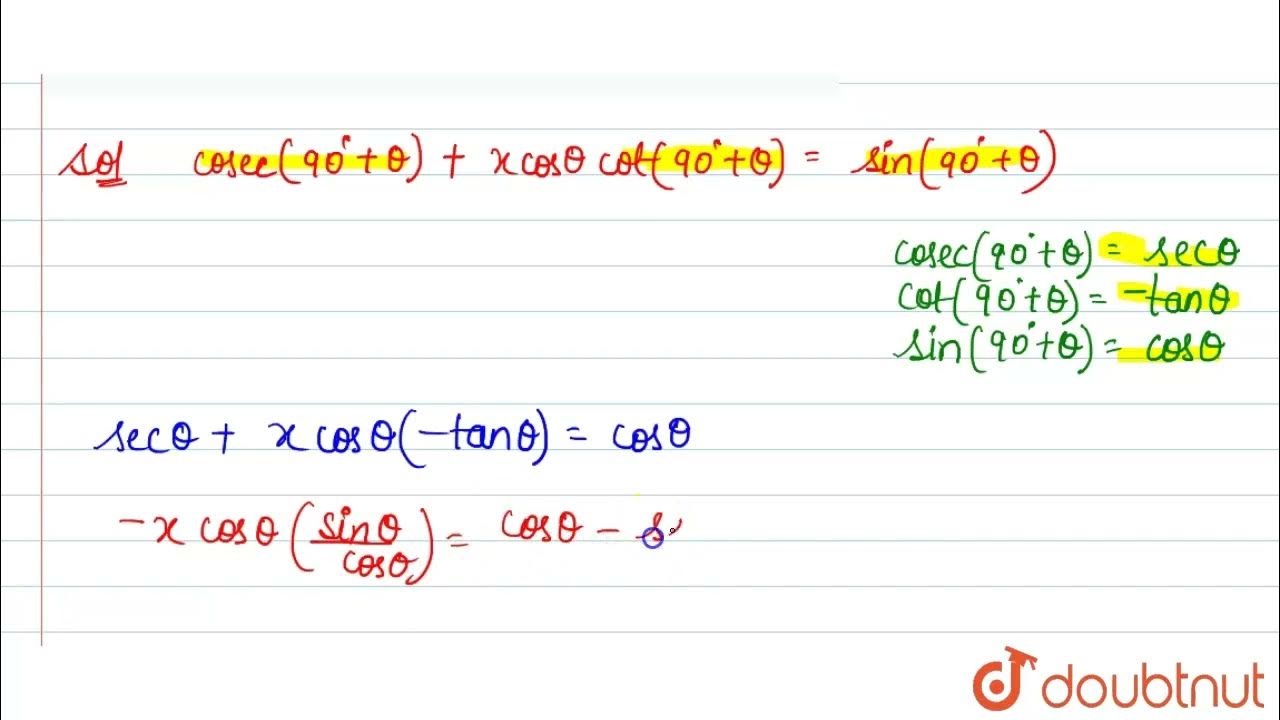 Sol cosec(90°+θ) + x cosθ cot(90°+θ) = sin(90°+θ)
cosec(90°+θ) = secθ
cot(90°+θ) = -tanθ
sin(90°+θ) = cosθ
secθ + x cosθ(-tanθ) = cosθ
-x cosθ (sinθ/cosθ) = cosθ - s
doubtnut